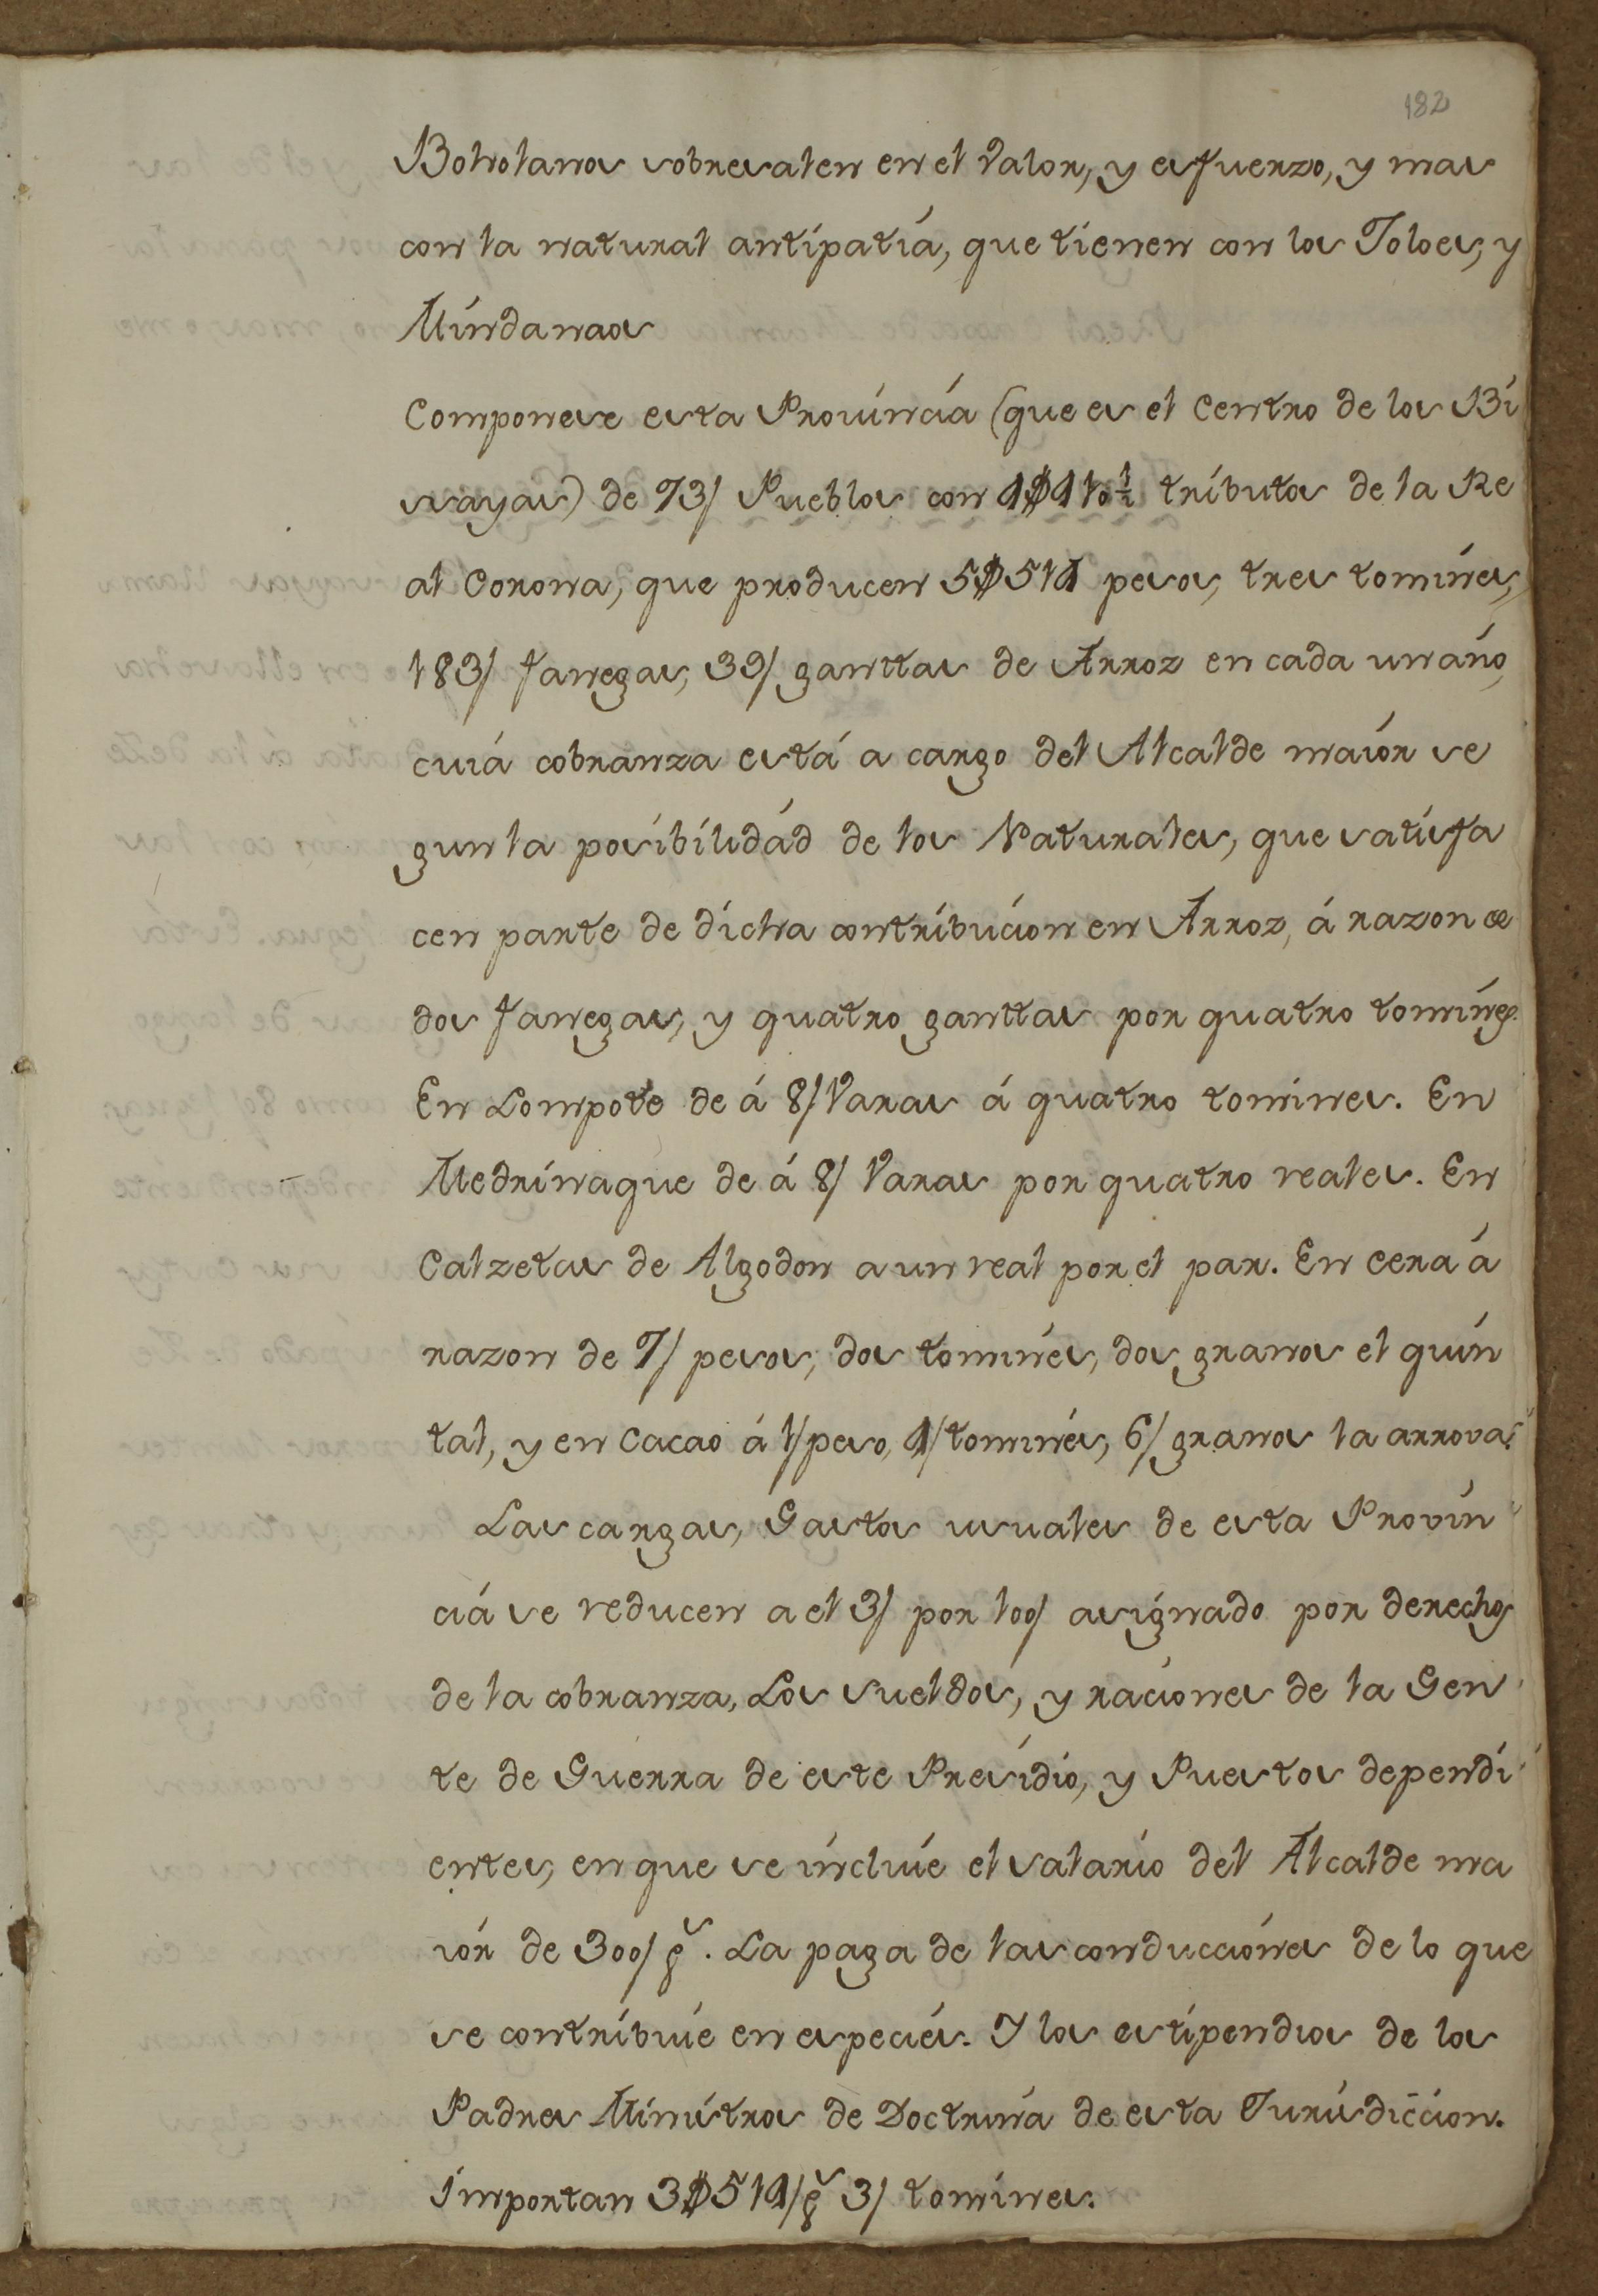 182
Boholanos sobresalen en el Valor, y esfuerzo, y mas
con la natural antipatía, que tienen con los Joloes, y
Mindanaos
Componese esta Provincia (que es el Centro de los Bi
sayas) de 73/ Pueblos con 4$410½ tributos de la Re
al Corona, que producen 5$514 pesos, tres tomines,
183/ fanegas, 39/ ganttas de Arroz en cada un año,
cuiá cobranza está a cargo del Alcalde maior se
gun la posibilidád de los Naturales, que satisfa
cen parte de dicha contribucion en Arroz, á razon de
dos fanegas, y quatro ganttas por quatro tomines.
En Lompote de á 8/ Varas á quatro tomines. En
Medrinaque de á 8/ Varas por quatro reales. En
Calzetas de Algodon a un real por el par. En cera á
razon de 7/ pesos, dos tomines, dos granos el quin
tal, y en Cacao á 1/ peso, 4/ tomines, 6/ granos la arrova.
Las cargas, Gastos usuales de esta Provin
ciá se reducen a el 3/ por 100/ asignado por derechos
de la cobranza, Los Sueldos, y raciones de la Gen
te de Guerra de este Presidio, y Puestos dependi
entes, en que se incluie el Salario del Alcalde ma
ior de 300/ ps. La paga de las conducciones de lo que
se contribuie en especies. Y los estipendios de los
Padres Ministros de Doctrina de esta Jurisdiccion.
Importan 3$514/ ps 3/ tomines.